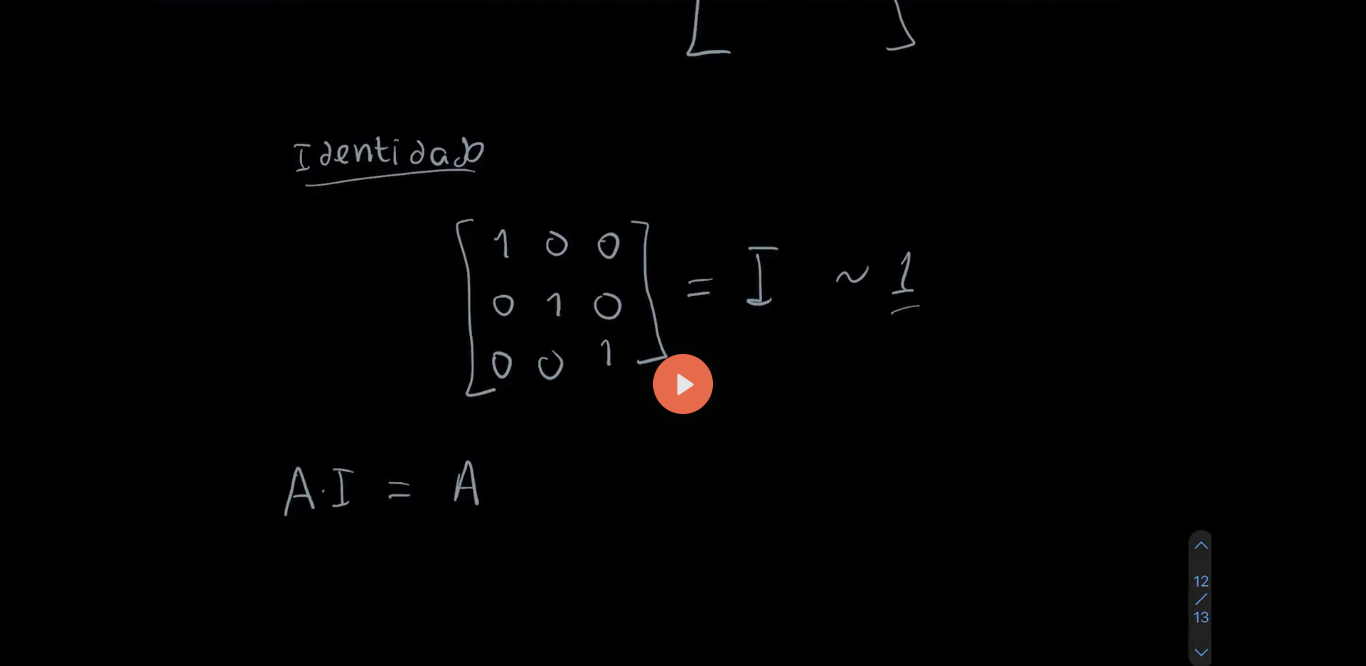 Identidad
1 0 0
0 1 0 = I ~ 1
0 0 1
A·I = A
12
/
13